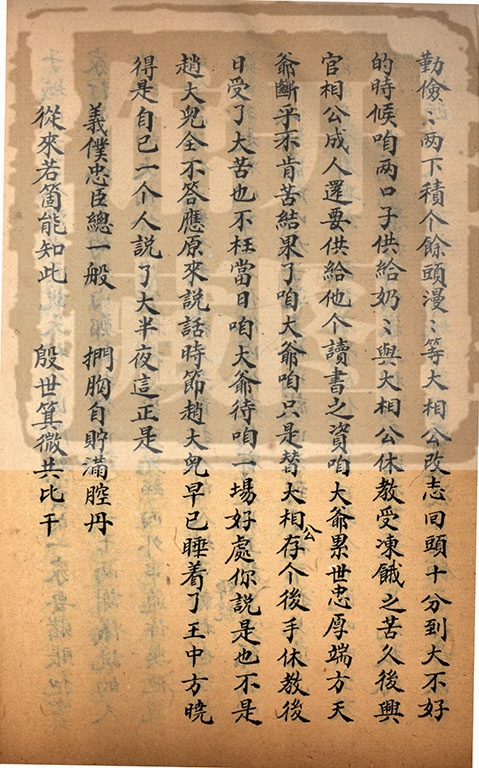 勤儉〻兩下積个餘頭漫〻等大相公改志回頭十分到大不好
的時候咱兩口子供給奶〻與大相公休教受凍餓之苦久後興
官相公成人還要供給他个讀書之資咱大爺累世忠厚端方天
爺斷乎不肯苦結果了咱大爺咱只是替大相公存个後手休教後
日受了大苦也不枉當日咱大爺待咱一場好處你說是也不是
趙大兒全不答應原來說話時節趙大兒早已睡着了王中方曉
得是自己一个人說了大半夜這正是
義僕忠臣總一般　捫胸自貯滿腔丹
從來若箇能知此　殷世箕微共比干